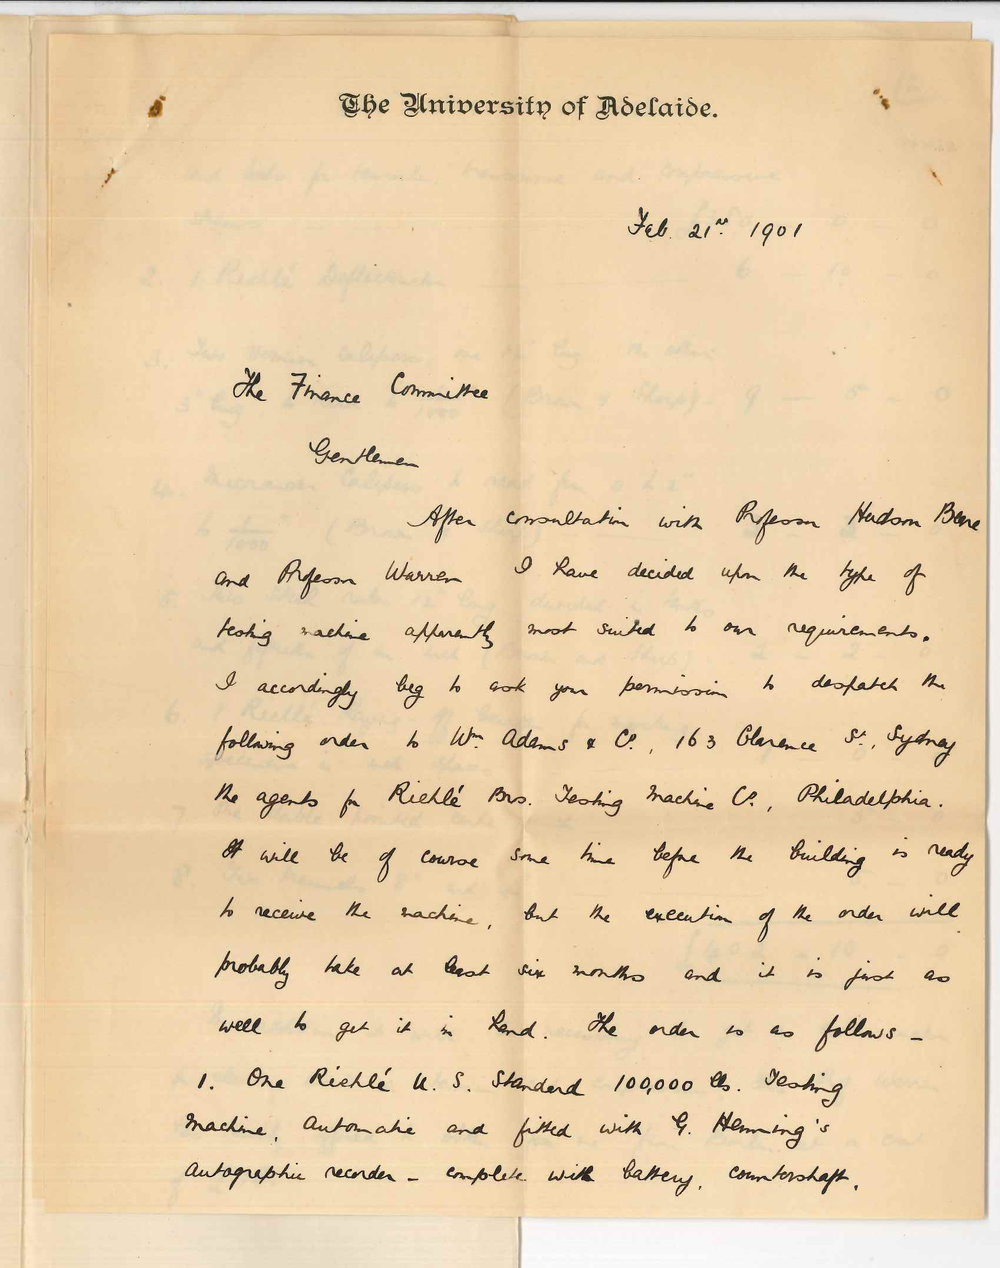 The University of Adelaide.
Feb. 21st. 1901
The Finance Committee
Gentlemen
After consultation with Professor Hudson Beare
and Professor Warren I have decided upon the type of
testing machine apparently most suited to our requirements.
I accordingly beg to ask your permission to despatch the
following order to Wm. Adams & Co., 163 Clarence St., Sydney
the agents for Riehlé Bros. Testing Machine Co., Philadelphia.
It will be of course some time before the building is ready
to receive the machine, but the execution of the order will
probably take at least six months and it is just as
well to get it in hand. The order is as follows –
1. One Riehlé U. S. Standard 100,000 lbs. Testing
Machine, automatic and fitted with G. Henning's
autographic recorder – complete with battery, countershaft,